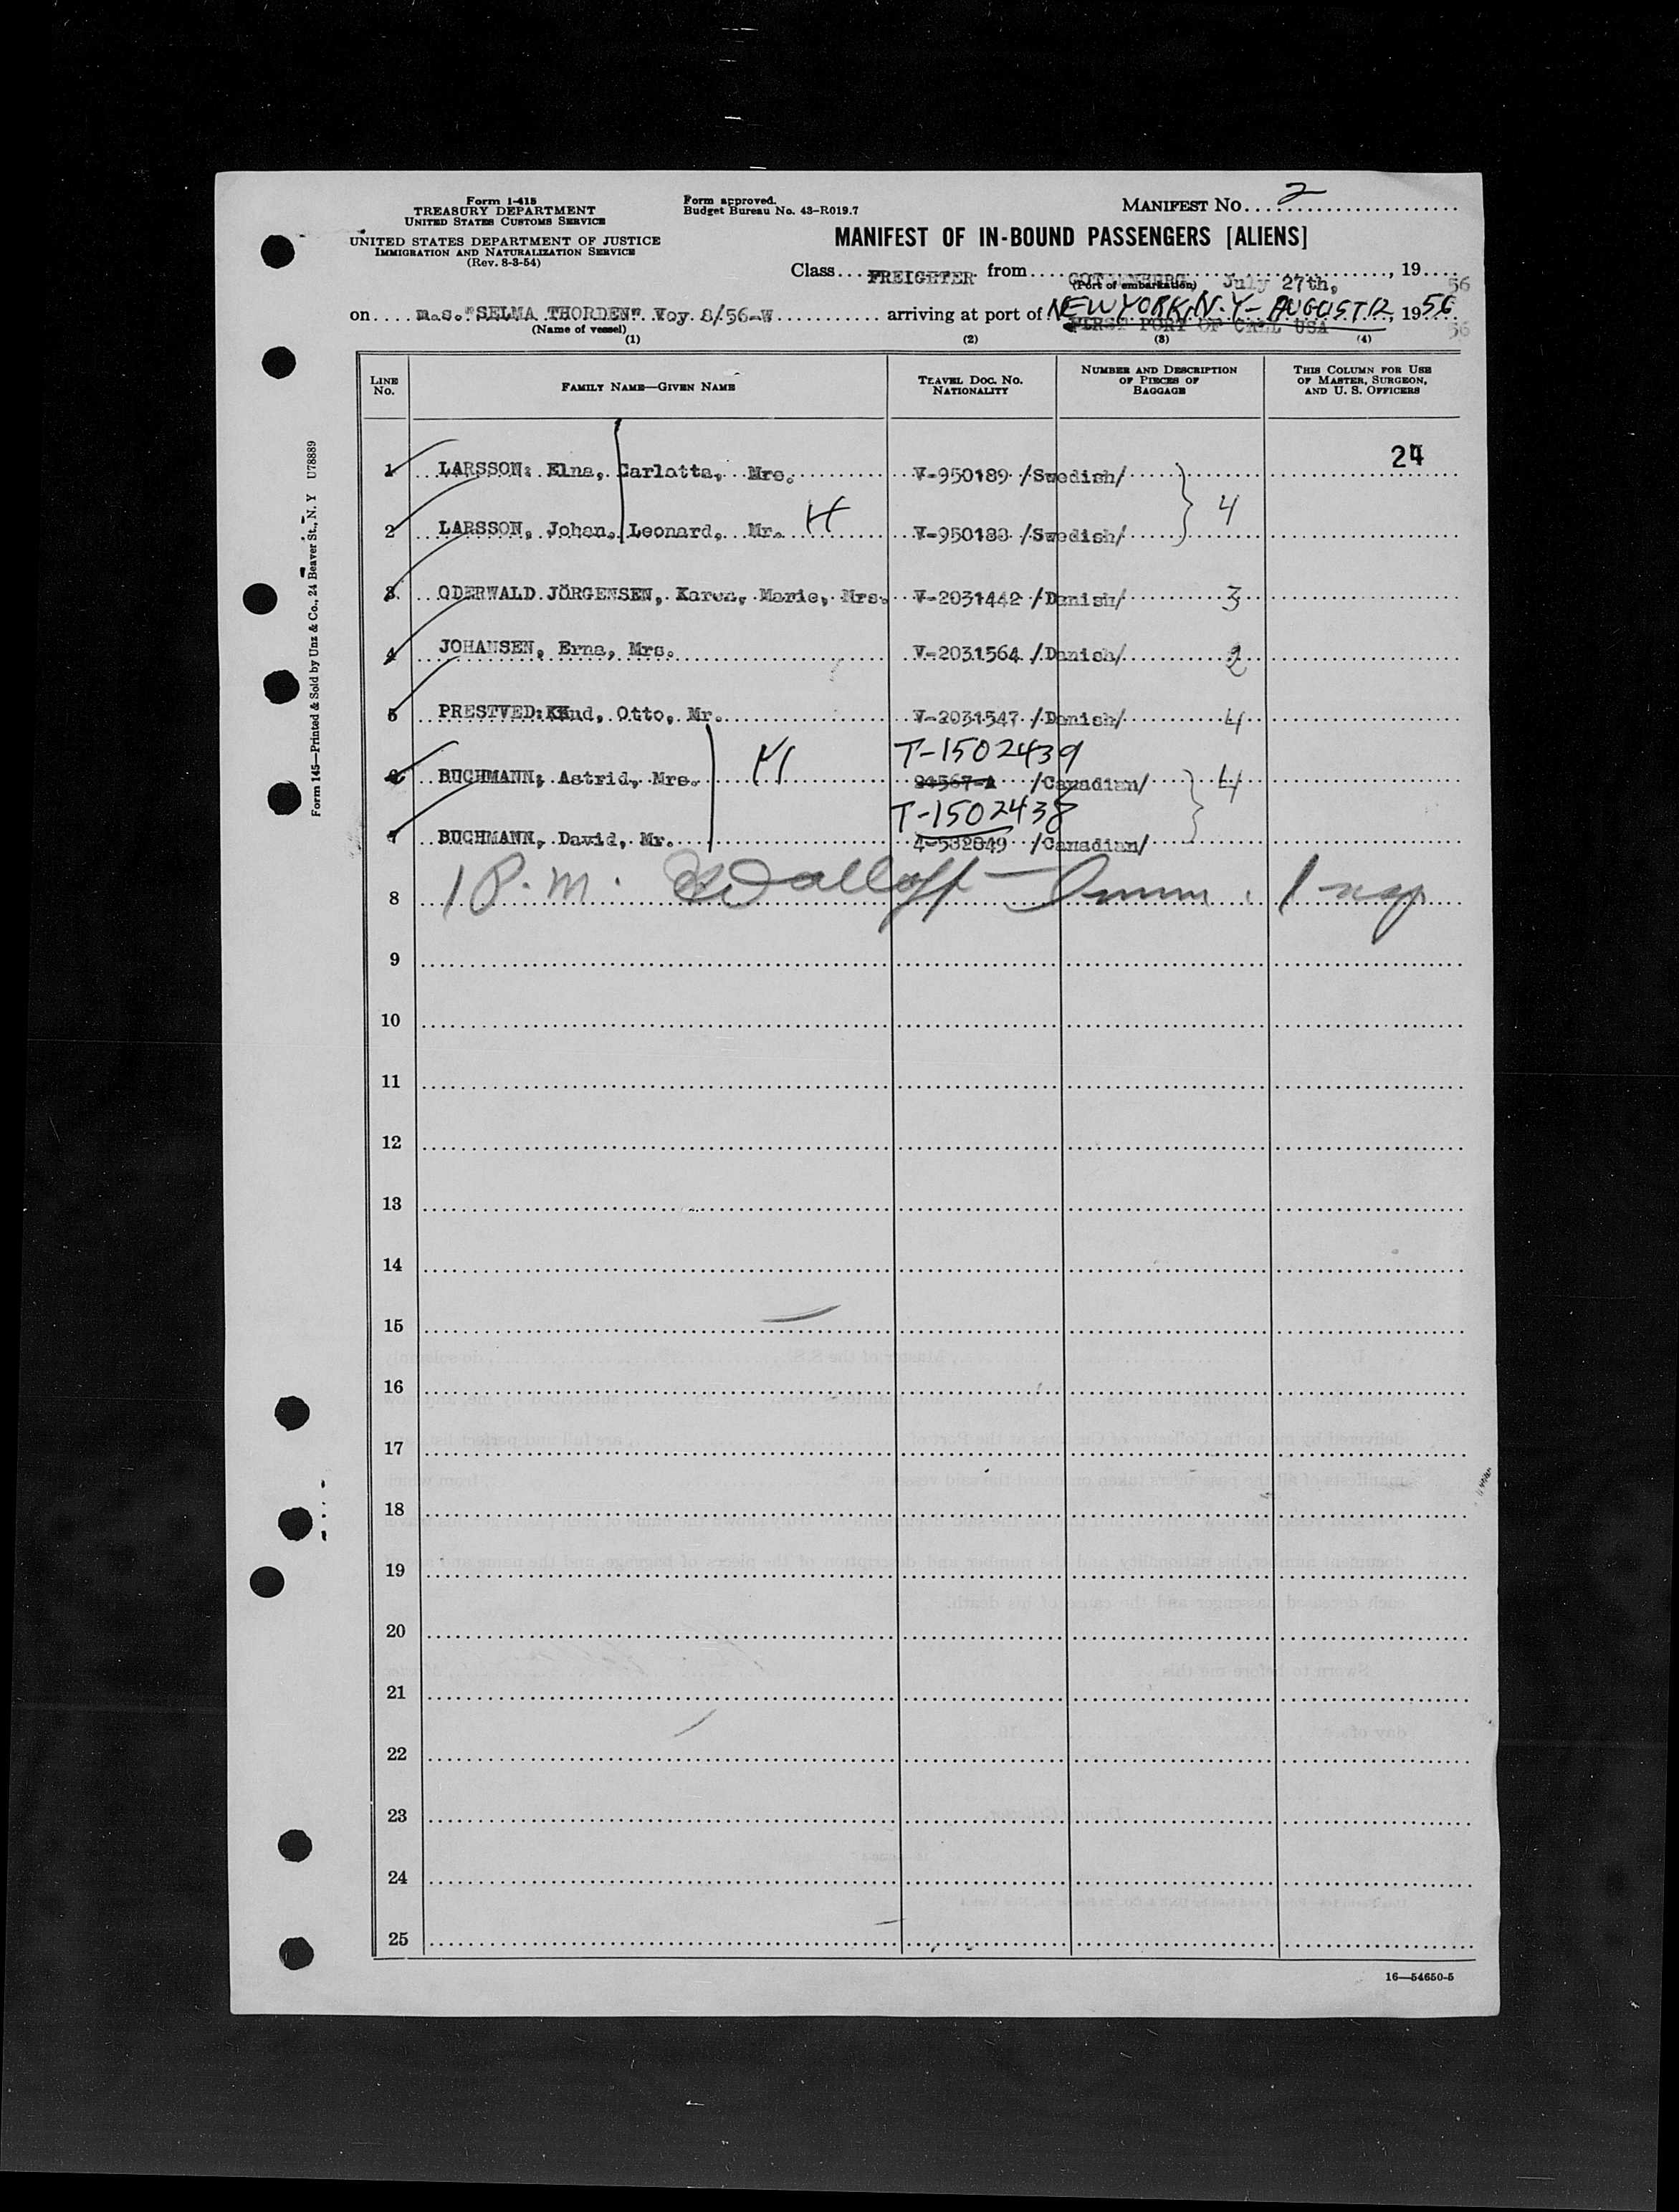 Form I-418
TREASURY DEPARTMENT
UNITED STATES CUSTOMS SERVICE
UNITED STATES DEPARTMENT OF JUSTICE
IMMIGRATION AND NATURALIZATION SERVICE
(Rev. 8-3-54)
Form approved.
Budget Bureau No. 43-R019.7
MANIFEST NO. 2
MANIFEST OF IN-BOUND PASSENGERS [ALIENS]
Class FREIGHTER from GOTHENBURG, July 27th, 19 56
(Port of embarkation)
on m.s. "SELMA THORDEN" Voy 8/56-W arriving at port of NEW YORK, N.Y - AUGUST 12, 1956
FIRST PORT OF CALL USA 56
(Name of vessel)
(1) (2) (3) (4)
LINE NO. FAMILY NAME—GIVEN NAME TRAVEL DOC. NO. NATIONALITY NUMBER AND DESCRIPTION OF PIECES OF BAGGAGE THIS COLUMN FOR USE OF MASTER, SURGEON, AND U. S. OFFICERS
24
1 LARSSON: Elna, Carlotta, Mrs. V-950189 /Swedish/
2 LARSSON, Johan, Leonard, Mr. H V-950188 /Swedish/ 4
3 ODERWALD JÖRGENSEN, Karen, Marie, Mrs. V-2031442 /Danish/ 3
4 JOHANSEN, Erna, Mrs. V-2031564 /Danish/ 2
5 PRESTVED: KKnd, Otto, Mr. V-2031547 /Danish/ 4
T-1502439
6 BUCHMANN: Astrid, Mrs. H /Canadian/ 4
T-1502438
7 BUCHMANN, David, Mr. 4-532049 /Canadian/
8 1 P.m. Walloff - Imm. Insp
9
10
11
12
13
14
15
16
17
18
19
20
21
22
23
24
25
16—54650-5
Form 145—Printed & Sold by Unz & Co., 24 Beaver St., N. Y U78889